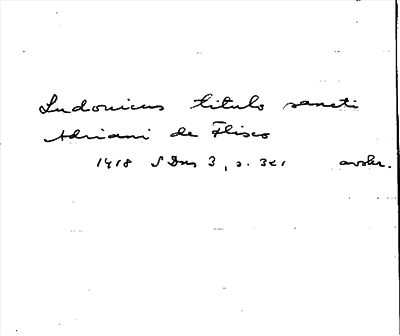 Ludonicus titulo sancti
Adriani de Flisco
1418 S Dns 3, s. 321 avskr.